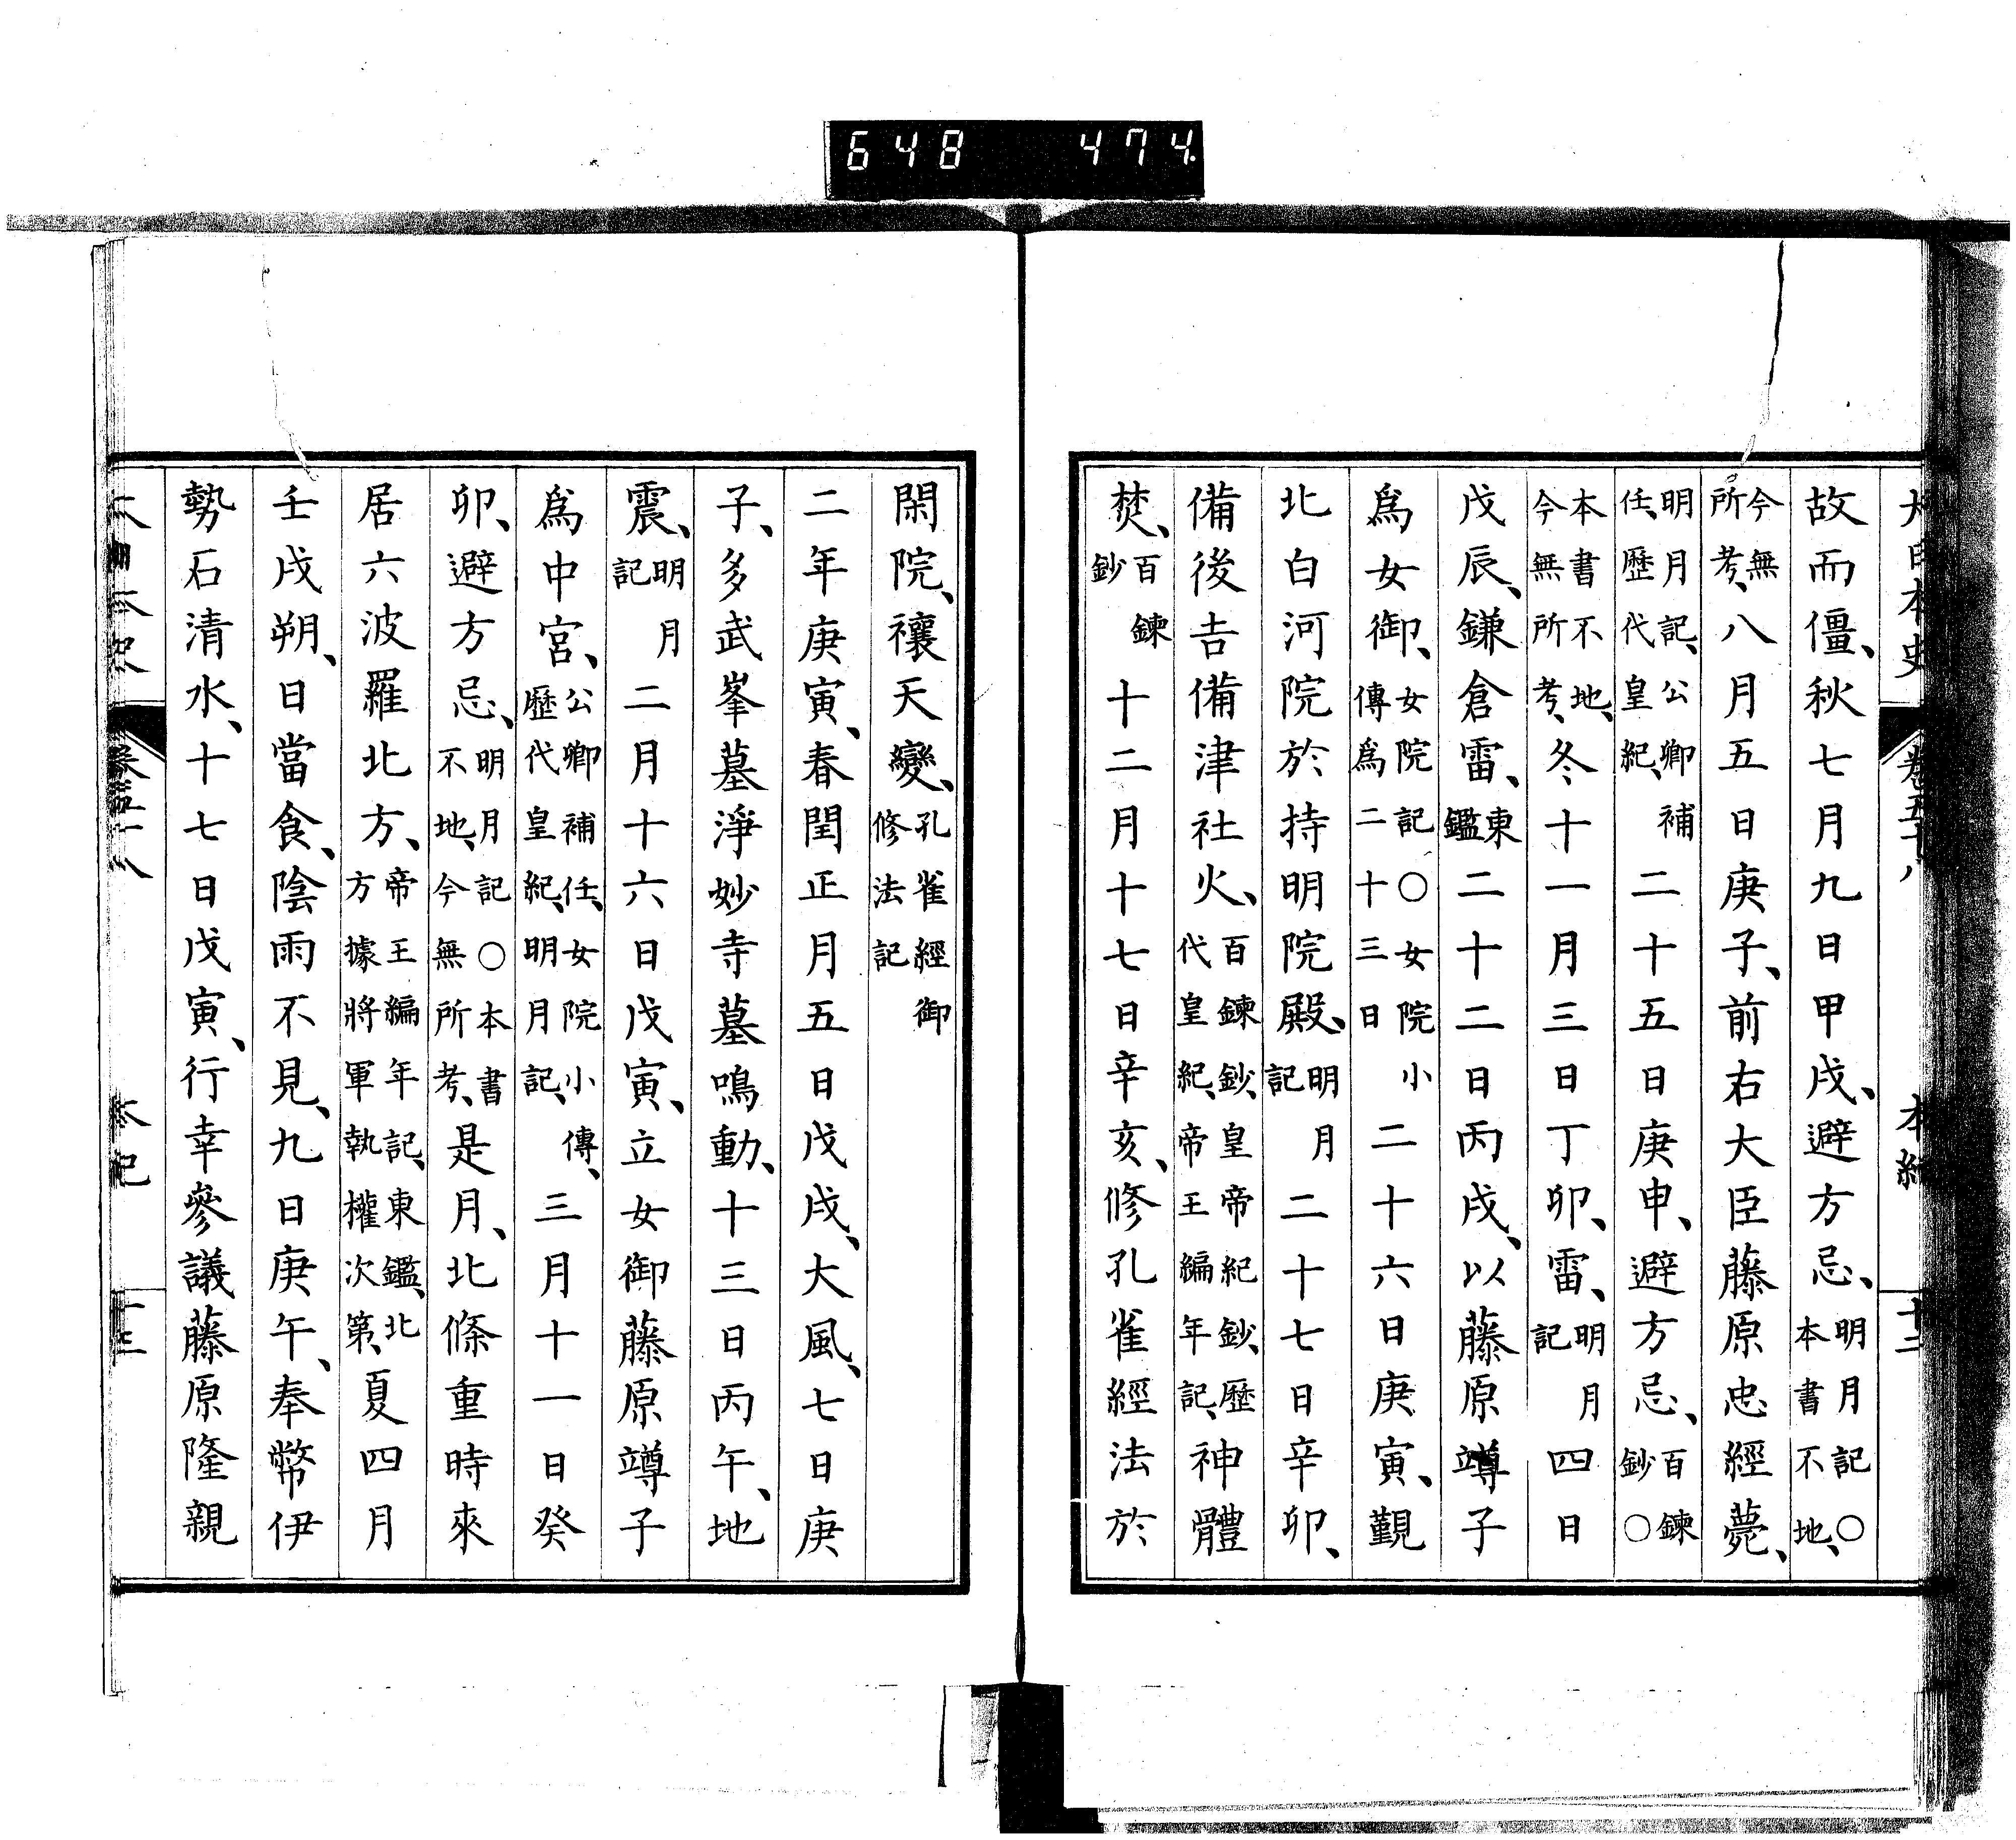 648 474
大日本史 卷五十八 本紀 十二
故而僵、秋七月九日甲戌、避方忌、明月記○本書不地、
今無所考、八月五日庚子、前右大臣藤原忠經薨、
明月記、公卿補任、歷代皇紀、二十五日庚申、避方忌、百鍊鈔○
本書不地、今無所考、冬十一月三日丁卯、雷、明月記四日
戊辰、鎌倉雷、東鑑二十二日丙戌、以藤原竴子
爲女御、女院記○女院小傳爲二十三日二十六日庚寅、覲
北白河院於持明院殿、明月記二十七日辛卯、
備後吉備津社火、百鍊鈔、皇帝紀鈔、歷代皇紀、帝王編年記、神體
焚、百鍊鈔十二月十七日辛亥、修孔雀經法於
閑院、禳天變、孔雀經御修法記
二年庚寅、春閏正月五日戊戌、大風、七日庚
子、多武峯墓淨妙寺墓鳴動、十三日丙午、地
震、明月記二月十六日戊寅、立女御藤原竴子
爲中宮、公卿補任、女院小傳、歷代皇紀、明月記、三月十一日癸
卯、避方忌、明月記○本書不地、今無所考、是月、北條重時來
居六波羅北方、帝王編年記、東鑑、北方據將軍執權次第、夏四月
壬戌朔、日當食、陰雨不見、九日庚午、奉幣伊
勢石清水、十七日戊寅、行幸參議藤原隆親